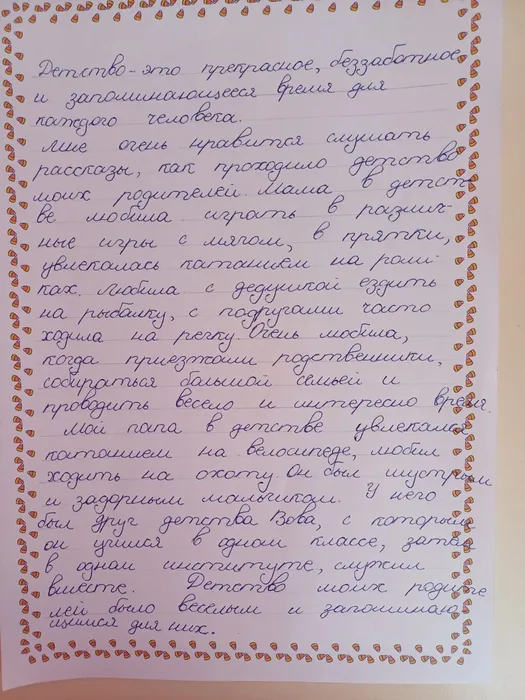 Детство-это прекрасное, беззаботное
и запоминающееся время для
каждого человека.
Мне очень нравится слушать
рассказы, как проходило детство
моих родителей. Мама в детст-
ве любила играть в различ-
ные игры с мячом, в прятки,
увлекалась катанием на роли-
ках. Любила с дедушкой ездить
на рыбалку, с подругами часто
ходила на речку. Очень любила,
когда приезжали родственники,
собираться большой семьёй и
проводить весело и интересно время.
Мой папа в детстве увлекался
катанием на велосипеде, любил
ходить на охоту. Он был шустрым
и задорным мальчиком. У него
был друг детства Вова, с которым
он учился в одном классе, затем
в одном институте, служил
вместе. Детство моих родите
лей было веселым и запоминаю-
щимся для них.